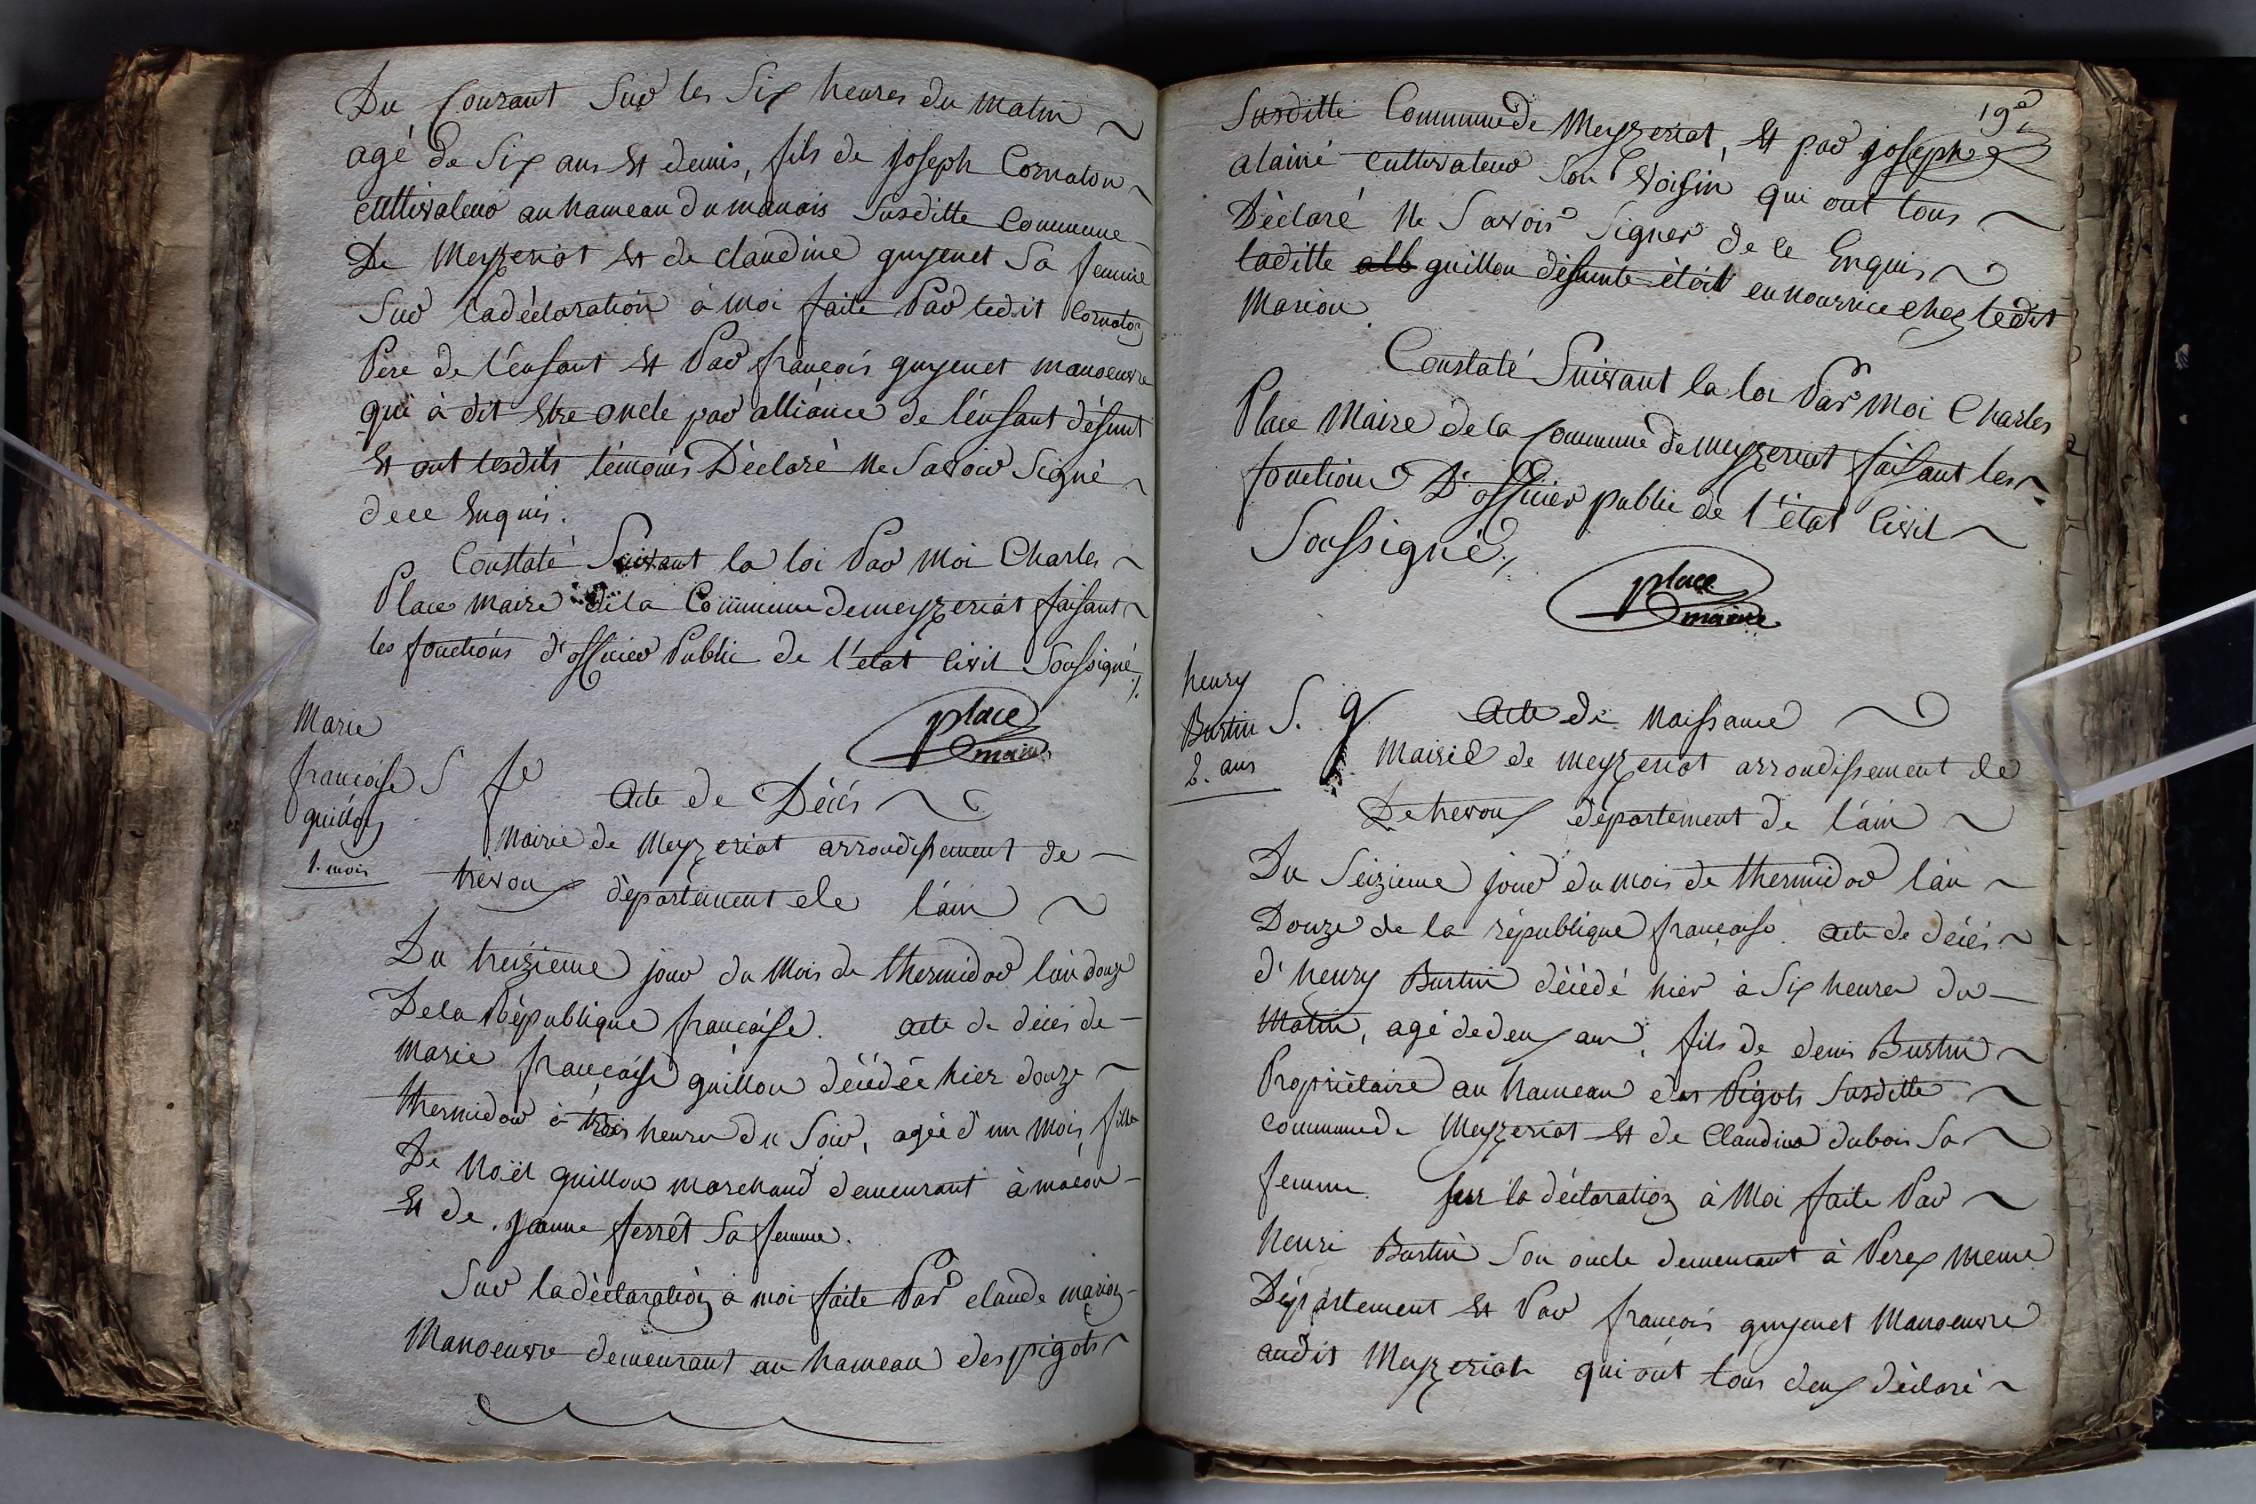 Du Courant Sur les Six heures du matin
agé de Six ans Et demis, fils de joseph Cornaton
cultivateur au hameau du manois Susditte Commune
De Meyzeriat Et de claudine guyenet Sa femme
Sur la déclaration à moi faite Par ledit Cornaton
Père de l'énfant Et Par françois guyenet manoeuvre
qui à dit Etre oncle par alliance de l'énfant défunt
Et ont lesdits témoins Déclaré Ne Savoir Signé
de ce Enquis.
Constaté Suivant la loi Par Moi Charles
Place maire de la Commune de meyzeriat faisant
les fonctions d'officier Public de l'état Civil Soussigné
place
maire
Marie
françoise S
guillon
1. mois
fe
Acte de Décés
Mairie de Meyzeriat arrondissement de
trévoux département de l'ain
Du treizieme jour du Mois de thermidor l'àn douze
De la République française. Acte de décés de
Marie françoise guillon décédée hier douze
thermidor à trois heures du Soir, agée d'un Mois, fille
De Noël guillon marchand demeurant à macon
Et de jeanne ferrêt Sa femme.
Sur la déclaration à moi faite Par claude marion
Manoeuvre demeurant au hameau des pigots
19e
Susditte Commune de Meyzeriat, Et par joseph
alainé cultivateur Son Voisin qui ont tous
Déclaré Ne Savoir Signer de ce Enquis
laditte alb guillon défunte étoit en nourrice chez ledit
Marion.
Constaté Suivant la loi Par Moi Charles
Place Maire de la Commune de meyzeriat faisant les
fonctions D'officier public de l'état Civil
Soussigné
place
maire
henry
Burtin S.
2. ans
g
Acte de Naissance
Mairie de meyzeriat arrondissement de
De trevoux département de l'ain
Du Seizieme jour du mois de thermidor l'àn
Douze de la république française. Acte de décés
d'henry Burtin décédé hier à Six heures du
Matin, agé de deux ans, fils de denis Burtin
Propriétaire au hameau des Pigots Susditte
commune de Meyzeriat Et de Claudine dubois Sa
femme. Sur la déclaration à Moi faite Par
henri Burtin Son oncle demeurant à Perex meme
Département Et Par françois guyenet Manoeuvre
audit Meyzeriat qui ont tous deux déclaré